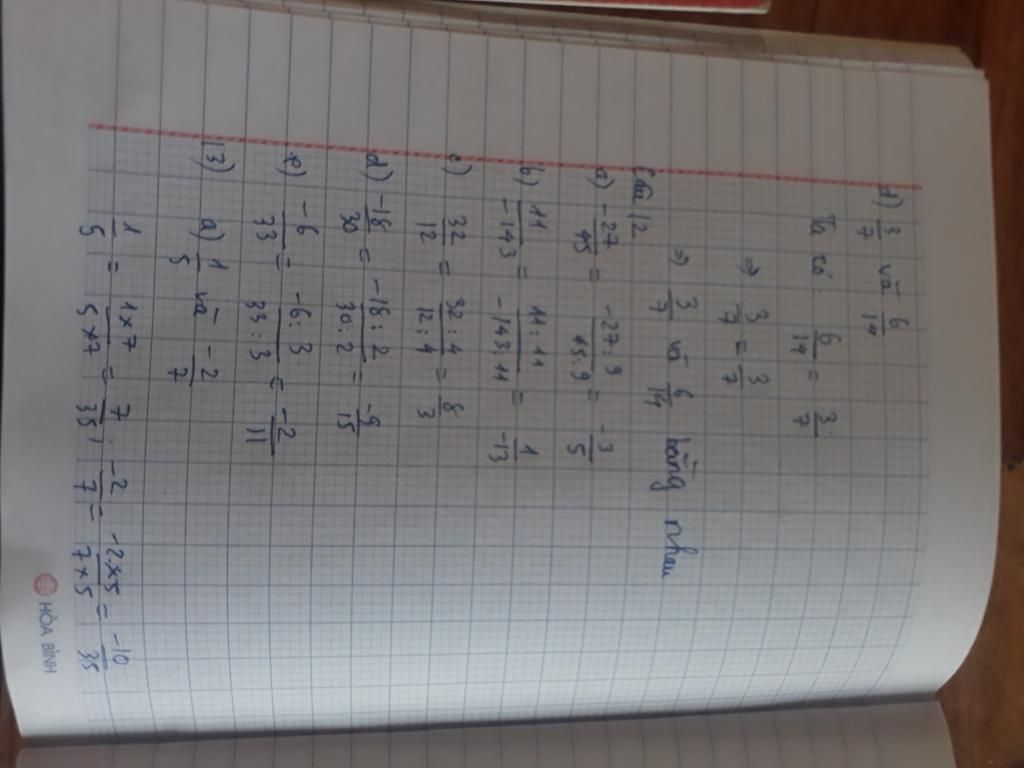 d) 3/7 và 6/14
Ta có: 6/14 = 3/7
⇒ 3/7 = 3/7
⇒ 3/7 và 6/14 bằng nhau
Câu 12
a) -27/45 = -27:9/45:9 = -3/5
b) 11/-143 = 11:11/-143:11 = 1/-13
c) 32/12 = 32:4/12:4 = 8/3
d) -18/30 = -18:2/30:2 = -9/15
e) -6/33 = -6:3/33:3 = -2/11
13) a) 1/5 và -2/7
1/5 = 1×7/5×7 = 7/35; -2/7 = -2×5/7×5 = -10/35
HÒA BÌNH